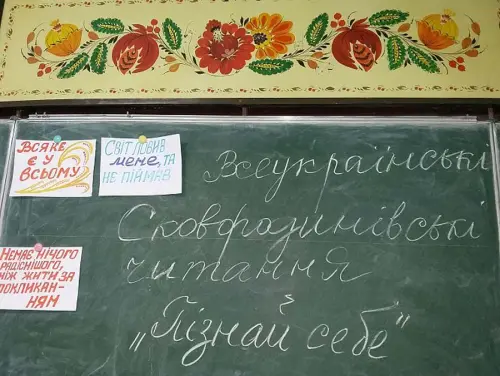 ВСЯКЕ
Є У
ВСЬОМУ
СВІТ ЛОВИВ
МЕНЕ, ТА
НЕ ПІЙМАВ
НЕМАЄ НІЧОГО
РАДІСНІШОГО,
НІЖ ЖИТИ ЗА
ПОКЛИКАН-
НЯМ
Всеукраїнські
Сковородинівські
читання
„Пізнай себе"